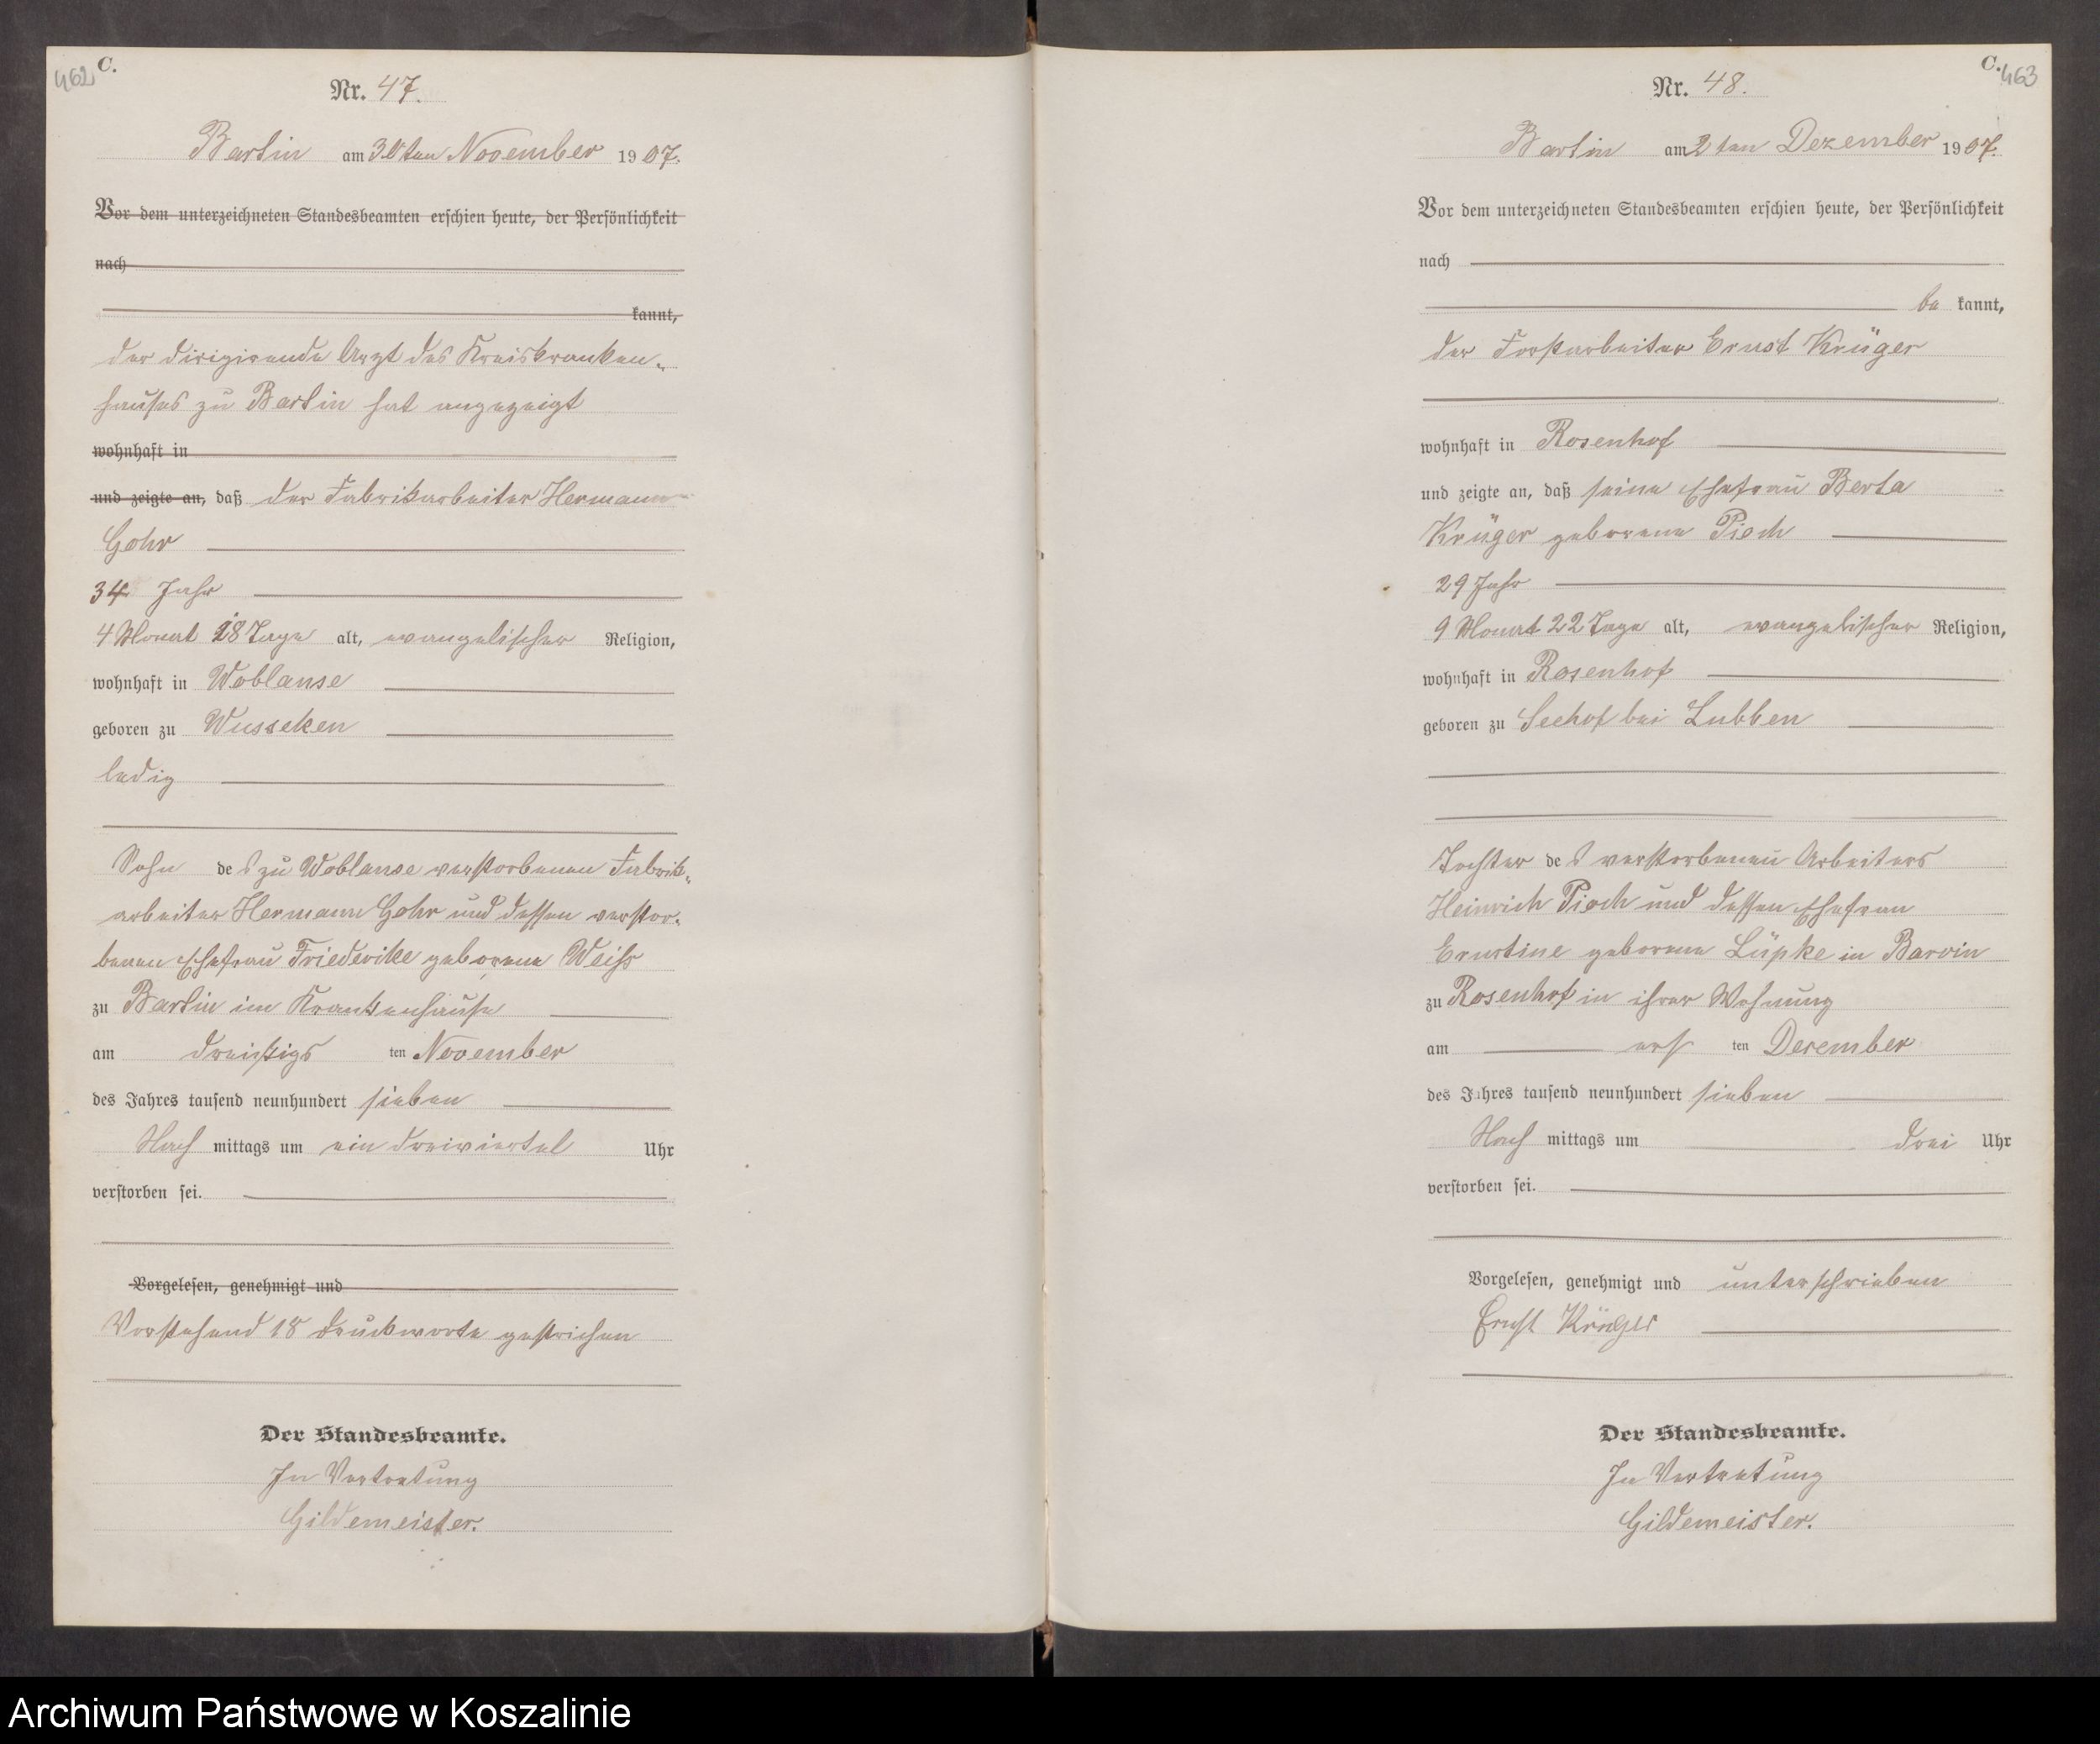 462 C.
Nr. 47.
Bartin am 30ten November 1907.
Vor dem unterzeichneten Standesbeamten erschien heute, der Persönlichkeit
nach
kannt,
der dirigirende Arzt des Kreiskranken-
hauses zu Bartin hat angezeigt
wohnhaft in
und zeigte an, daß der Fabrikarbeiter Hermann
Gohr
34 Jahr
4 Monat 18 Tage alt, evangelischer Religion,
wohnhaft in Woblanse
geboren zu Wusseken
ledig
Sohn des zu Woblanse verstorbenen Fabrik-
arbeiter Hermann Gohr und dessen verstor-
benen Ehefrau Friederike geborene Weiß
zu Bartin im Krankenhause
am dreißigs ten November
des Jahres tausend neunhundert sieben
Nach mittags um ein dreiviertel Uhr
verstorben sei.
Vorgelesen, genehmigt und
Vorstehend 18 Druckworte gestrichen
Der Standesbeamte.
In Vertretung
Gildemeister.
C. 463
Nr. 48.
Bartin am 2ten Dezember 1907.
Vor dem unterzeichneten Standesbeamten erschien heute, der Persönlichkeit
nach
be kannt,
der Forstarbeiter Ernst Krüger
wohnhaft in Rosenhof
und zeigte an, daß seine Ehefrau Berta
Krüger geborene Pioch
29 Jahr
9 Monat 22 Tage alt, evangelischer Religion,
wohnhaft in Rosenhof
geboren zu Seehof bei Lubben
Tochter des verstorbenen Arbeiters
Heinrich Pioch und dessen Ehefrau
Ernstine geborene Lüpke in Barvin
zu Rosenhof in ihrer Wohnung
am ers ten Dezember
des Jahres tausend neunhundert sieben
Nach mittags um drei Uhr
verstorben sei.
Vorgelesen, genehmigt und unterschrieben
Ernst Krüger
Der Standesbeamte.
In Vertretung
Gildemeister.
Archiwum Państwowe w Koszalinie